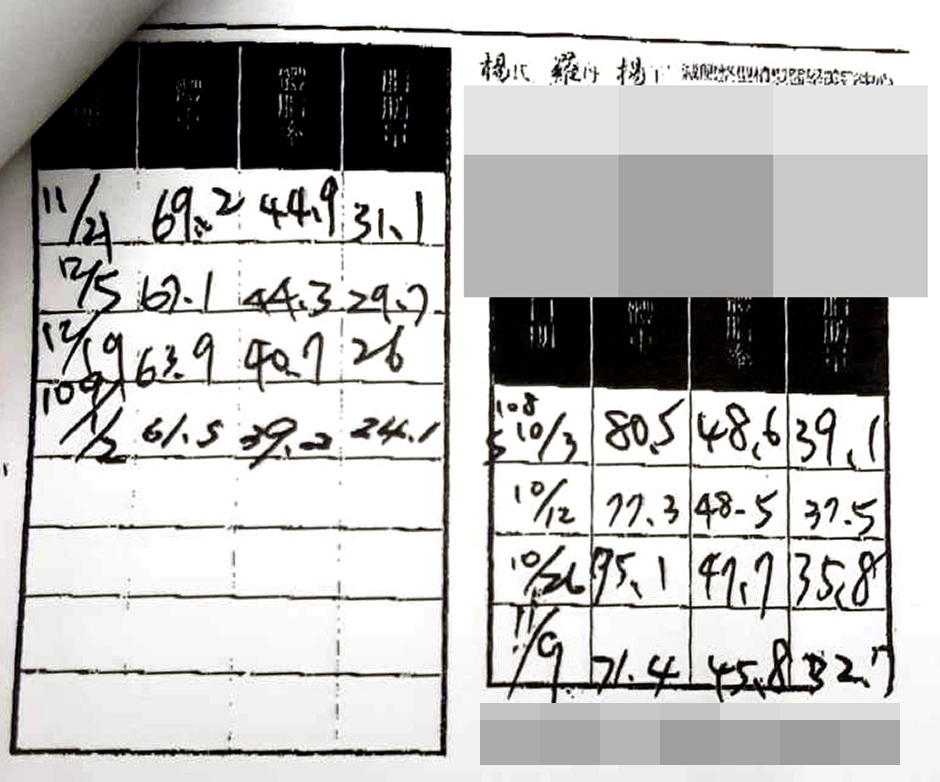 11/21 69.2 44.9 31.1
12/5 67.1 44.3 29.7
12/19 63.9 40.7 26
109
1/2 61.5 39.2 24.1
108
10/3 80.5 48.6 39.1
10/12 77.3 48.5 37.5
10/26 75.1 47.7 35.8
11/9 71.4 45.8 32.7